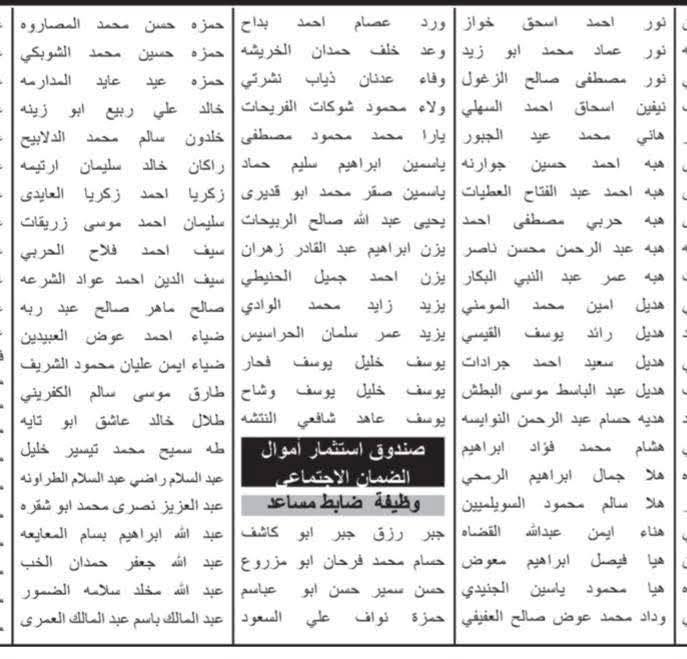 نور احمد اسحق خواز
نور عماد محمد ابو زيد
نور مصطفى صالح الزغول
نيفين اسحاق احمد السهلي
هاني محمد عيد الجبور
هبه احمد حسين جوارنه
هبه احمد عبد الفتاح العطيات
هبه حربي مصطفى احمد
هبه عبد الرحمن محسن ناصر
هبه عمر عبد النبي البكار
هديل امين محمد المومني
هديل رائد يوسف القيسي
هديل سعيد احمد جرادات
هديل عبد الباسط موسى البطش
هديه حسام عبد الرحمن النوايسه
هشام محمد فؤاد ابراهيم
هلا جمال ابراهيم الرمحي
هلا سالم محمود السويلميين
هناء ايمن عبدالله القضاه
هيا فيصل ابراهيم معوض
هيا محمود ياسين الجنيدي
وداد محمد عوض صالح العفيفي
ورد عصام احمد بداح
وعد خلف حمدان الخريشه
وفاء عدنان ذياب نشرتي
ولاء محمود شوكات الفريحات
يارا محمد محمود مصطفى
ياسمين ابراهيم سليم حماد
ياسمين صقر محمد ابو قديرى
يحيى عبد الله صالح الربيحات
يزن ابراهيم عبد القادر زهران
يزن احمد جميل الحنيطي
يزيد زايد محمد الوادي
يزيد عمر سلمان الحراسيس
يوسف خليل يوسف فحار
يوسف خليل يوسف وشاح
يوسف عاهد شافعي النتشه
صندوق استثمار أموال
الضمان الاجتماعي
وظيفة ضابط مساعد
جبر رزق جبر ابو كاشف
حسام محمد فرحان ابو مزروع
حسن سمير حسن ابو عباسم
حمزة نواف علي السعود
حمزه حسن محمد المصاروه
حمزه حسين محمد الشوبكي
حمزه عيد عايد المدارمه
خالد علي ربيع ابو زينه
خلدون سالم محمد الدلابيح
راكان خالد سليمان ارتيمه
زكريا احمد زكريا العايدى
سليمان احمد موسى زريقات
سيف احمد فلاح الحربي
سيف الدين احمد عواد الشرعه
صالح ماهر صالح عبد ربه
ضياء احمد عوض العبيدين
ضياء ايمن عليان محمود الشريف
طارق موسى سالم الكفريني
طلال خالد عاشق ابو تايه
طه سميح محمد تيسير خليل
عبد السلام راضي عبد السلام الطراونه
عبد العزيز نصرى محمد ابو شقره
عبد الله ابراهيم بسام المعايعه
عبد الله جعفر حمدان الخب
عبد الله مخلد سلامه الضمور
عبد المالك باسم عبد المالك العمرى